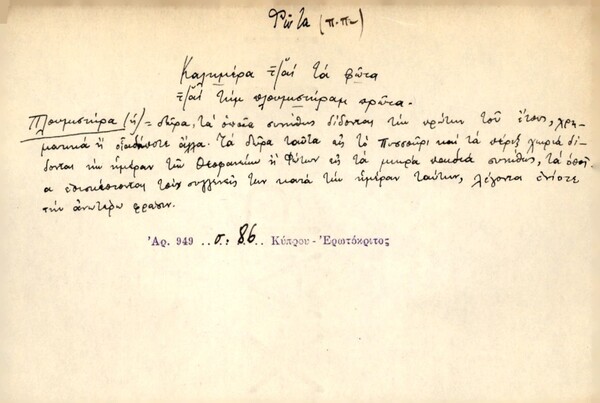 Φῶτα (π.π.)
Καλημέρα τζ̌αὶ τὰ φῶτα
τζ̌αὶ τὴμ πλουμιστήραμ πρῶτα.
Πλουμιστήρα (ἡ) = δῶρα, τὰ ὁποῖα συνήθως δίδονται τὴν πρώτην τοῦ ἔτους, χρη-
ματικὰ ἢ οἱαδήποτε ἄλλα. Τὰ δῶρα ταῦτα εἰς τὸ Πισσοῦρι καὶ τὰ πέριξ χωριὰ δί-
δονται τὴν ἡμέραν τῶν Θεοφανείων ἢ Φώτων εἰς τὰ μικρὰ παιδιὰ συνήθως, τὰ ὁποῖ-
α ἐπισκέπτονται τοὺς συγγενεῖς των κατὰ τὴν ἡμέραν ταύτην, λέγοντα ἐνίοτε
τὴν ἀνωτέρω φρᾶσιν.
Ἀρ. 949 ..σ. 86.. Κύπρου - Ἐρωτόκριτος